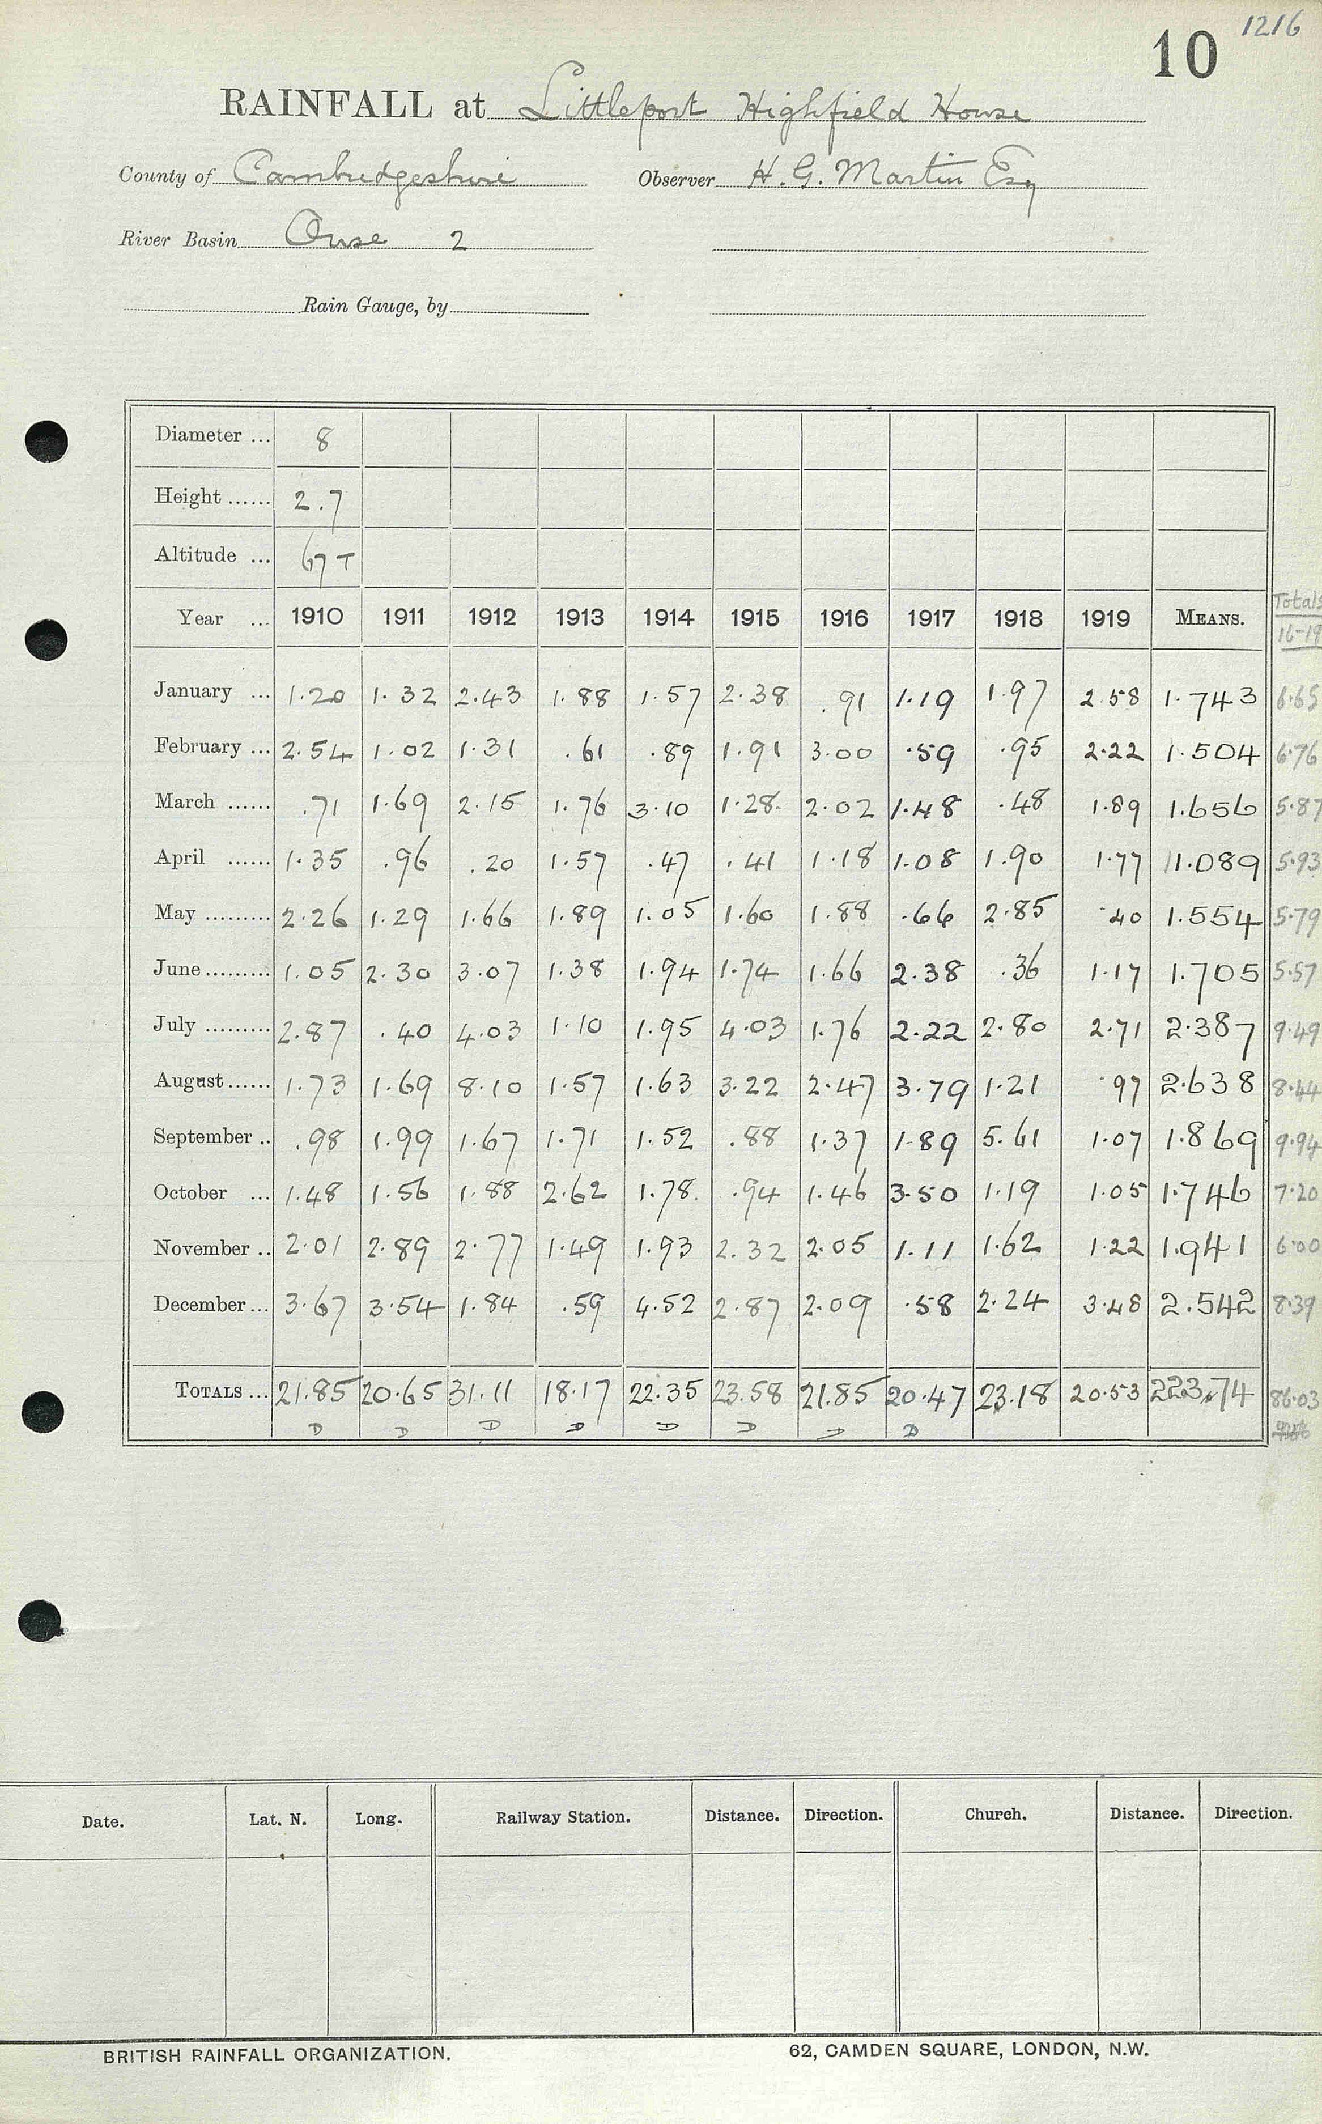 1216
10
RAINFALL at Littleport Highfield House
County of Cambridgeshire Observer H. G. Martin Esq
River Basin Ouse 2
Rain Gauge, by
Diameter ... 8
Height ...... 2.7
Altitude ... 67 T
Year ... 1910 1911 1912 1913 1914 1915 1916 1917 1918 1919 MEANS. Totals 16-19
January ... 1.20 1.32 2.43 1.88 1.57 2.38 .91 1.19 1.97 2.58 1.743 6.65
February ... 2.54 1.02 1.31 .61 .89 1.91 3.00 .59 .95 2.22 1.504 6.76
March ...... .71 1.69 2.15 1.76 3.10 1.28 2.02 1.48 .48 1.89 1.656 5.87
April ...... 1.35 .96 .20 1.57 .47 .41 1.18 1.08 1.90 1.77 1.089 5.93
May ......... 2.26 1.29 1.66 1.89 1.05 1.60 1.88 .66 2.85 .40 1.554 5.79
June ......... 1.05 2.30 3.07 1.38 1.94 1.74 1.66 2.38 .36 1.17 1.705 5.57
July ......... 2.87 .40 4.03 1.10 1.95 4.03 1.76 2.22 2.80 2.71 2.387 9.49
August ...... 1.73 1.69 8.10 1.57 1.63 3.22 2.47 3.79 1.21 .97 2.638 8.44
September .. .98 1.99 1.67 1.71 1.52 .88 1.37 1.89 5.61 1.07 1.869 9.94
October ... 1.48 1.56 1.88 2.62 1.78 .94 1.46 3.50 1.19 1.05 1.746 7.20
November .. 2.01 2.89 2.77 1.49 1.93 2.32 2.05 1.11 1.62 1.22 1.941 6.00
December ... 3.67 3.54 1.84 .59 4.52 2.87 2.09 .58 2.24 3.48 2.542 8.39
TOTALS ... 21.85 20.65 31.11 18.17 22.35 23.58 21.85 20.47 23.18 20.53 223.74 86.03
D D D D D D D D
Date. Lat. N. Long. Railway Station. Distance. Direction. Church. Distance. Direction.
BRITISH RAINFALL ORGANIZATION. 62, CAMDEN SQUARE, LONDON, N.W.